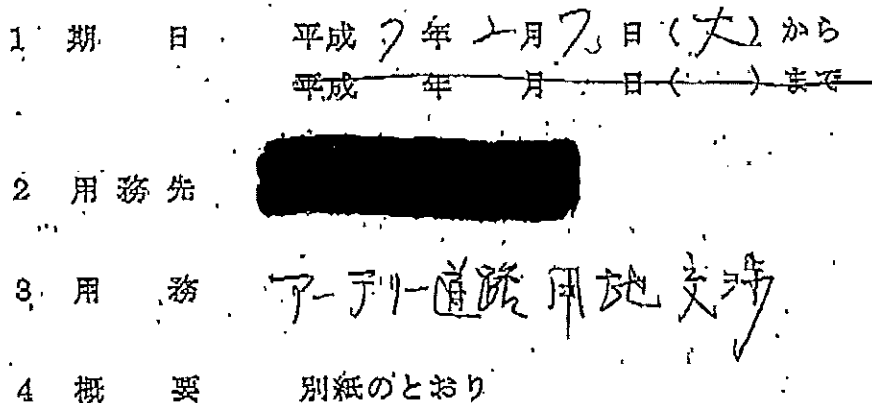 1 期 日 平成 7 年 2 月 7 日 (火) から
平成 年 月 日 ( ) まで
2 用務先
3 用 務 アーテリー道路用地交渉
4 概 要 別紙のとおり